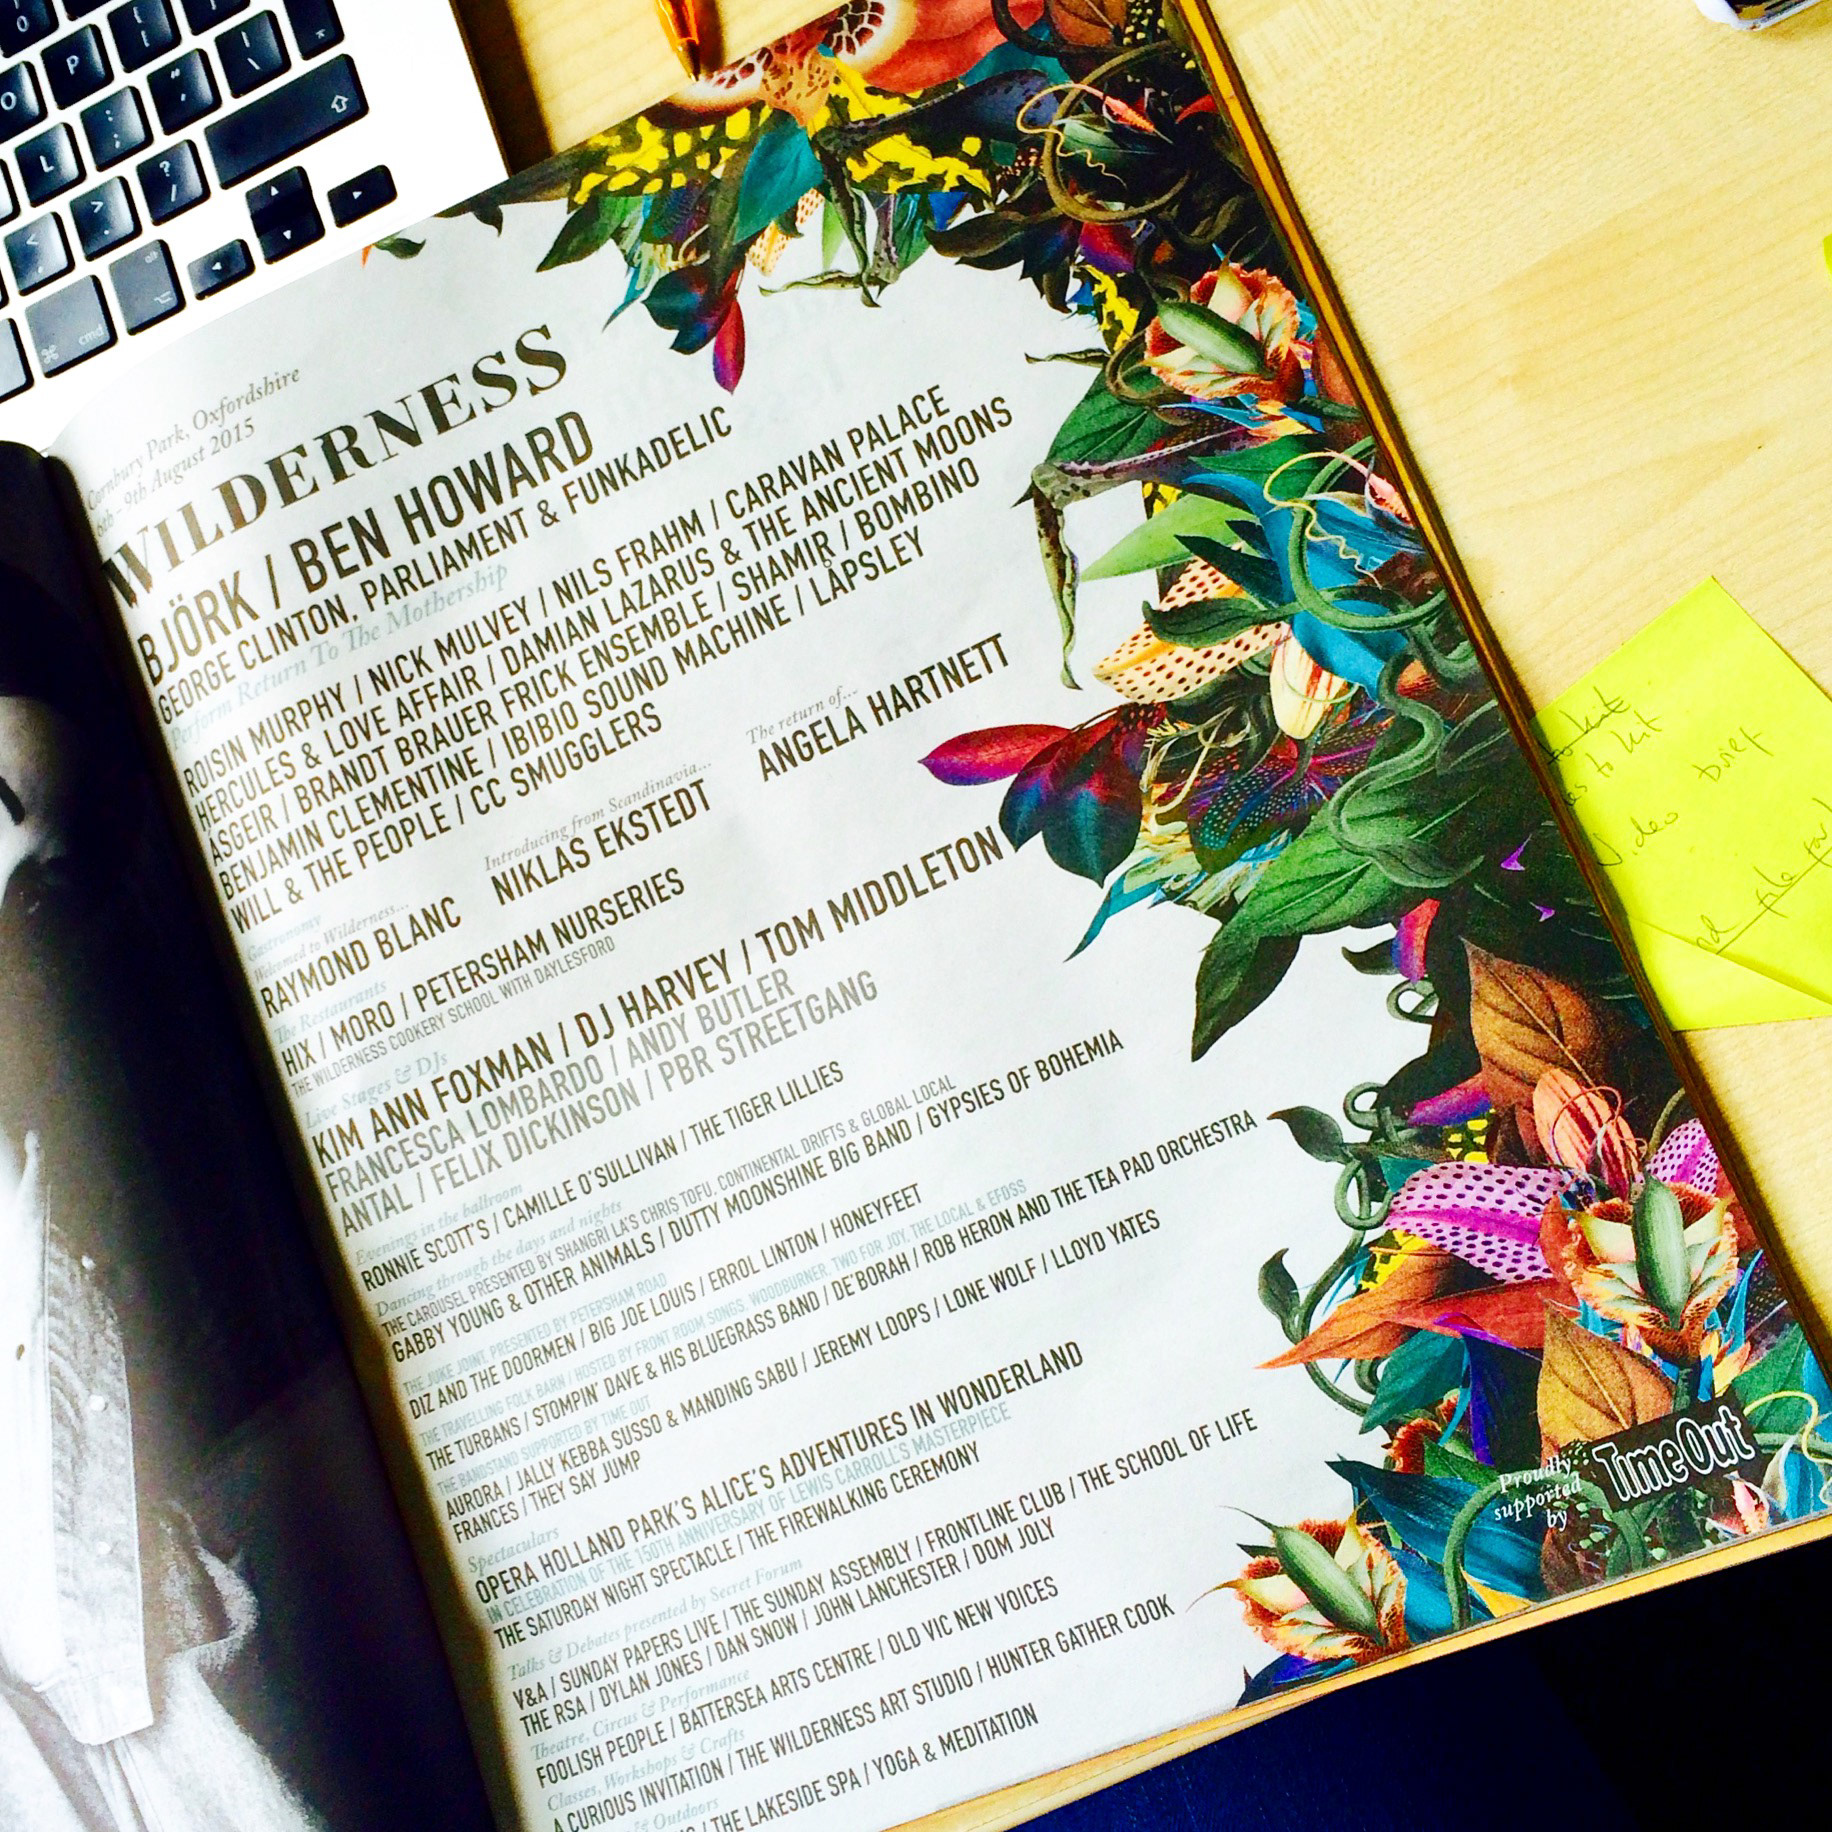 Cornbury Park, Oxfordshire
6th - 9th August 2015
WILDERNESS
BJÖRK / BEN HOWARD
GEORGE CLINTON, PARLIAMENT & FUNKADELIC
Perform Return To The Mothership
ROISIN MURPHY / NICK MULVEY / NILS FRAHM / CARAVAN PALACE
HERCULES & LOVE AFFAIR / DAMIAN LAZARUS & THE ANCIENT MOONS
ASGEIR / BRANDT BRAUER FRICK ENSEMBLE / SHAMIR / BOMBINO
BENJAMIN CLEMENTINE / IBIBIO SOUND MACHINE / LÅPSLEY
WILL & THE PEOPLE / CC SMUGGLERS
Gastronomy
Welcomed to Wilderness...
RAYMOND BLANC
Introducing from Scandinavia...
NIKLAS EKSTEDT
The return of...
ANGELA HARTNETT
The Restaurants
HIX / MORO / PETERSHAM NURSERIES
THE WILDERNESS COOKERY SCHOOL WITH DAYLESFORD
Live Stages & DJs
KIM ANN FOXMAN / DJ HARVEY / TOM MIDDLETON
FRANCESCA LOMBARDO / ANDY BUTLER
ANTAL / FELIX DICKINSON / PBR STREETGANG
Evenings in the ballroom
RONNIE SCOTT'S / CAMILLE O'SULLIVAN / THE TIGER LILLIES
Dancing through the days and nights
THE CAROUSEL PRESENTED BY SHANGRI LA'S CHRIS TOFU, CONTINENTAL DRIFTS & GLOBAL LOCAL
GABBY YOUNG & OTHER ANIMALS / DUTTY MOONSHINE BIG BAND / GYPSIES OF BOHEMIA
THE JUKE JOINT, PRESENTED BY PETERSHAM ROAD
DIZ AND THE DOORMEN / BIG JOE LOUIS / ERROL LINTON / HONEYFEET
THE TRAVELLING FOLK BARN / HOSTED BY FRONT ROOM SONGS, WOODBURNER, TWO FOR JOY, THE LOCAL & EFDSS
THE TURBANS / STOMPIN' DAVE & HIS BLUEGRASS BAND / DE'BORAH / ROB HERON AND THE TEA PAD ORCHESTRA
THE BANDSTAND SUPPORTED BY TIME OUT
AURORA / JALLY KEBBA SUSSO & MANDING SABU / JEREMY LOOPS / LONE WOLF / LLOYD YATES
FRANCES / THEY SAY JUMP
Spectaculars
OPERA HOLLAND PARK'S ALICE'S ADVENTURES IN WONDERLAND
IN CELEBRATION OF THE 150TH ANNIVERSARY OF LEWIS CARROLL'S MASTERPIECE
THE SATURDAY NIGHT SPECTACLE / THE FIREWALKING CEREMONY
Talks & Debates presented by Secret Forum
V&A / SUNDAY PAPERS LIVE / THE SUNDAY ASSEMBLY / FRONTLINE CLUB / THE SCHOOL OF LIFE
THE RSA / DYLAN JONES / DAN SNOW / JOHN LANCHESTER / DOM JOLY
Theatre, Circus & Performance
FOOLISH PEOPLE / BATTERSEA ARTS CENTRE / OLD VIC NEW VOICES
Classes, Workshops & Crafts
A CURIOUS INVITATION / THE WILDERNESS ART STUDIO / HUNTER GATHER COOK
& Outdoors
/ THE LAKESIDE SPA / YOGA & MEDITATION
Proudly
supported
by
TimeOut
to kit
Video brief
P
O
L
cmd
alt